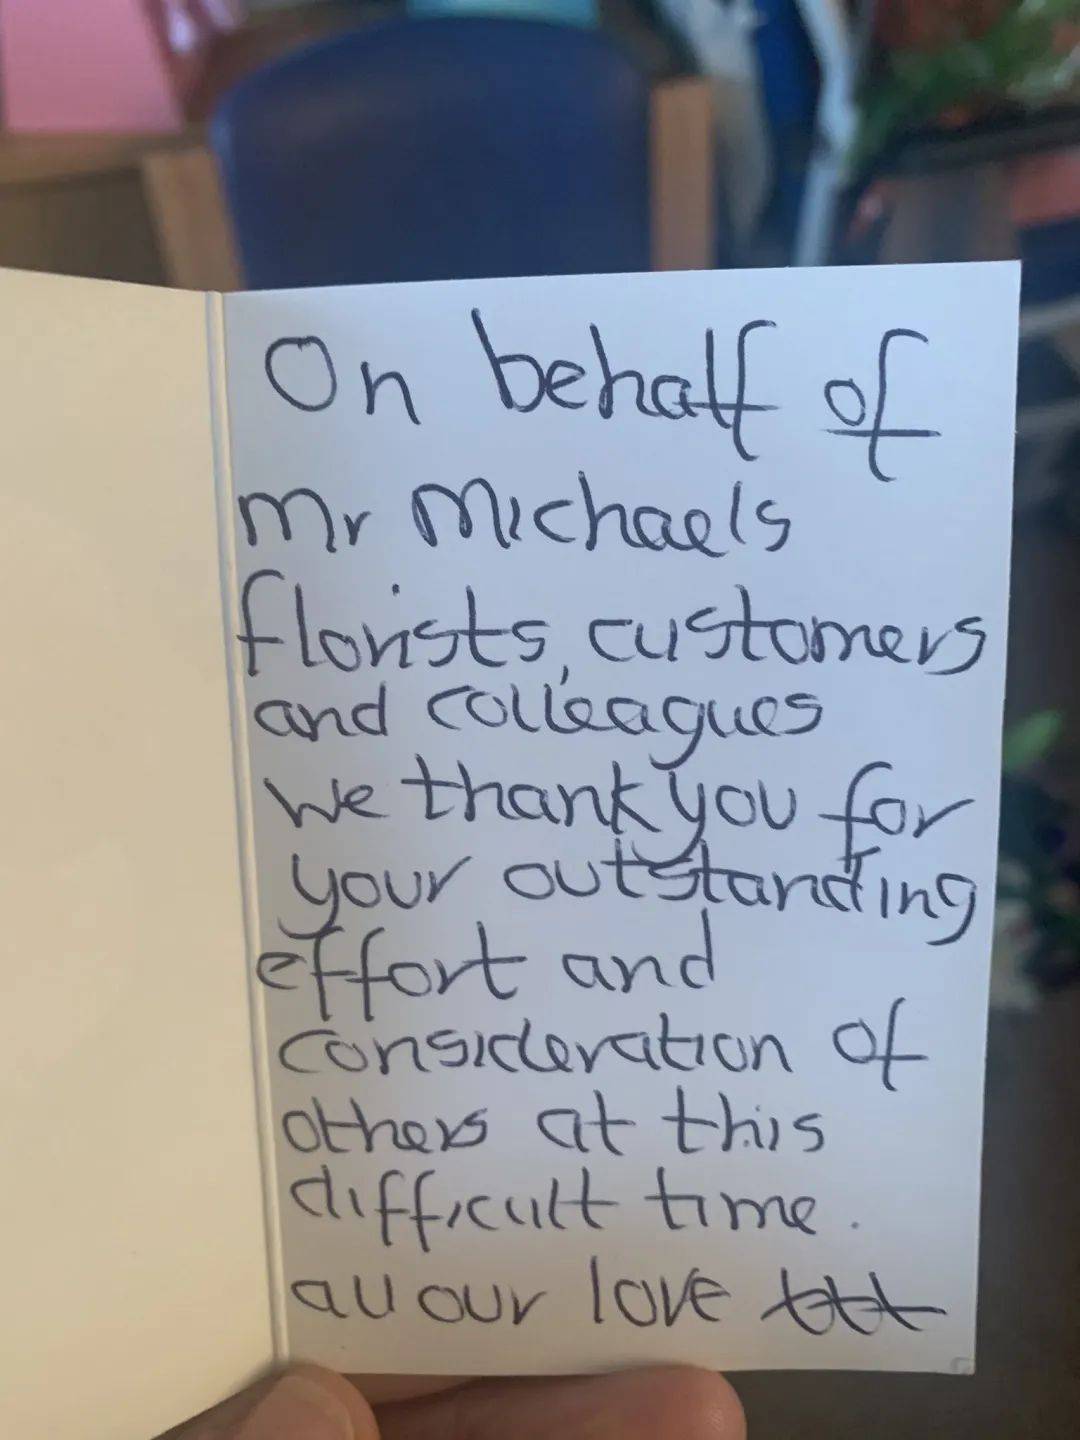 On behalf of
Mr Michaels
florists, customers
and colleagues
We thank you for
your outstanding
effort and
consideration of
others at this
difficult time.
all our love